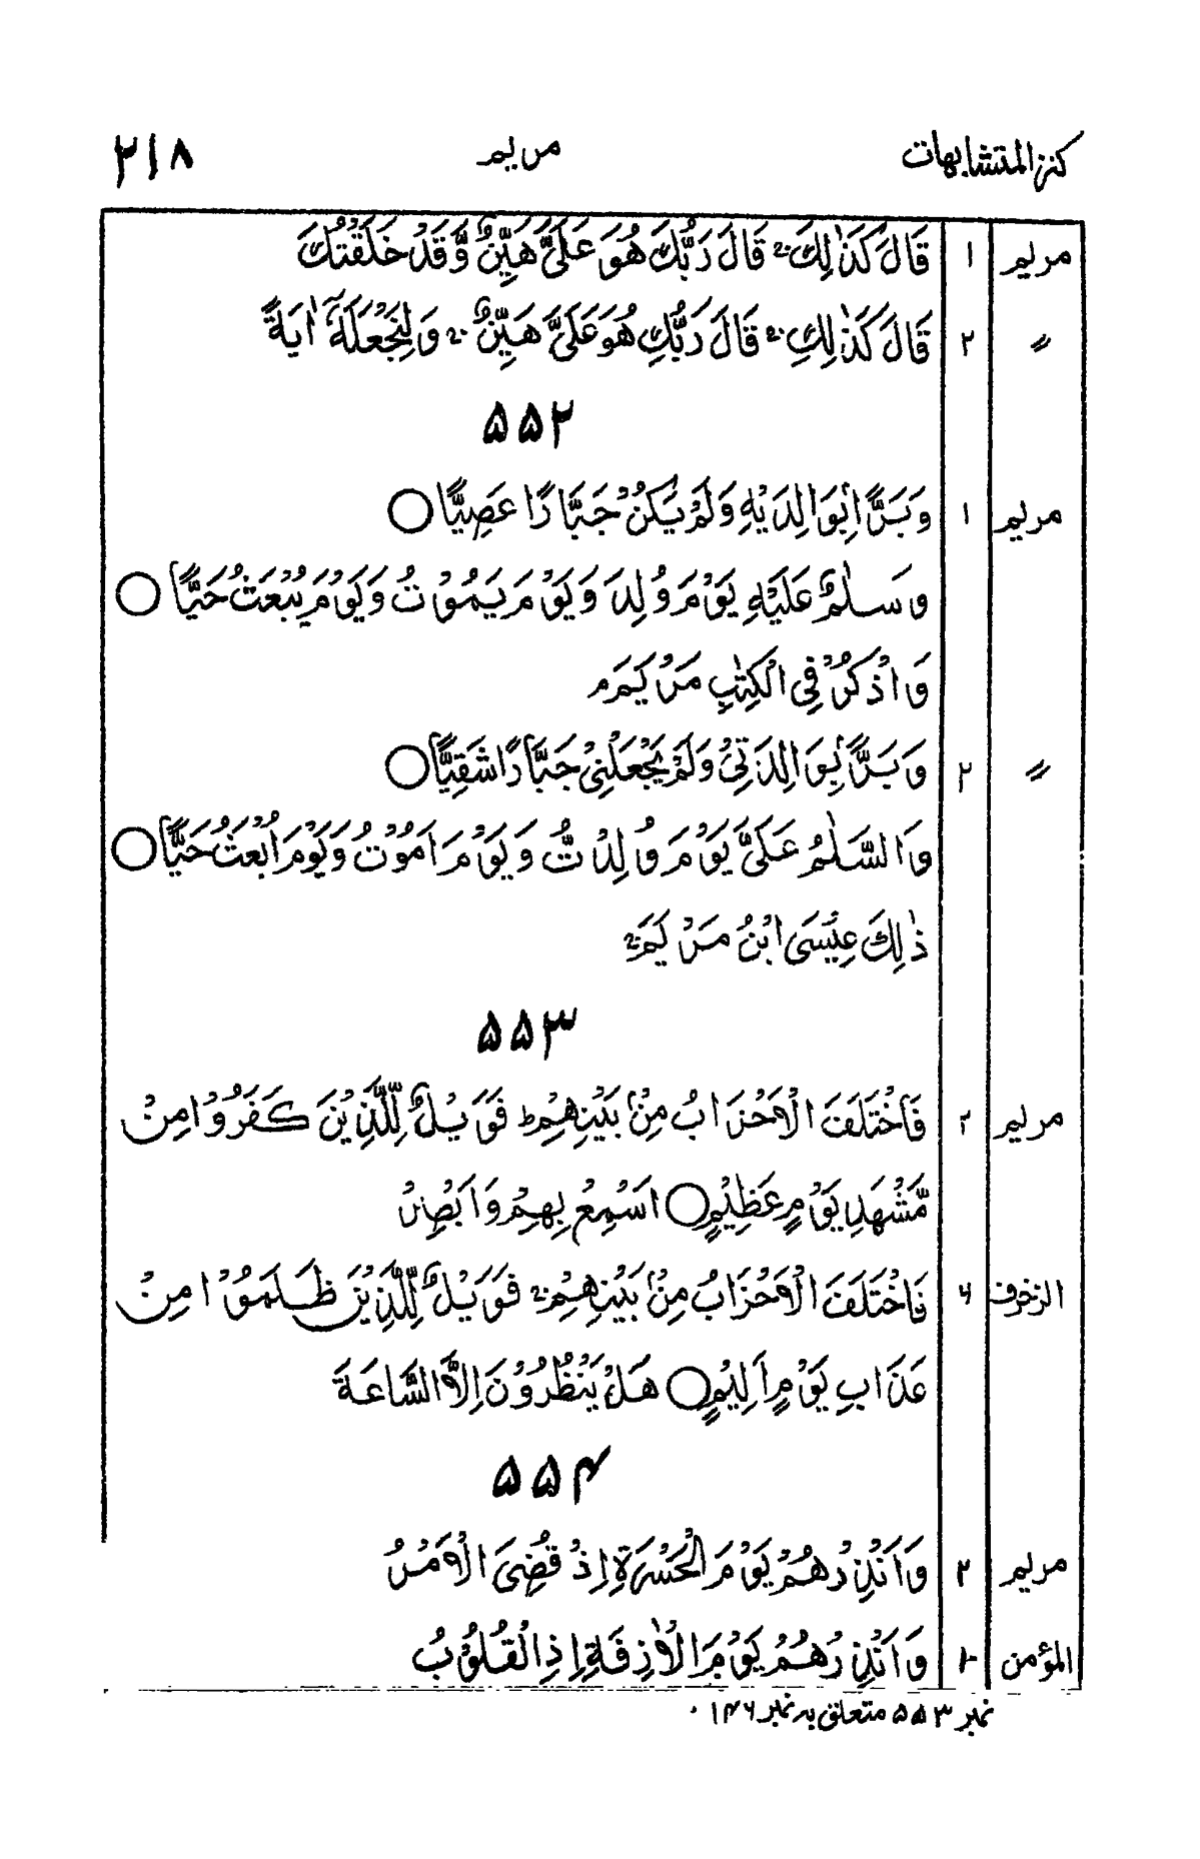 كنز المتشابهات مريم ٢١٨
مريم ١ قَالَ كَذٰلِكَ ۚ قَالَ رَبُّكَ هُوَ عَلَىَّ هَيِّنٌ وَّقَدْ خَلَقْتُكَ
〃 ٢ قَالَ كَذٰلِكِ ۚ قَالَ رَبُّكِ هُوَ عَلَىَّ هَيِّنٌ ۚ وَلِنَجْعَلَهٗۤ اٰيَةً
۵۵۲
مريم ١ وَّبَرًّۢا بِوَالِدَيْهِ وَلَمْ يَكُنْ جَبَّارًا عَصِيًّا ○
وَسَلٰمٌ عَلَيْهِ يَوْمَ وُلِدَ وَيَوْمَ يَمُوْتُ وَيَوْمَ يُبْعَثُ حَيًّا ○
وَاذْكُرْ فِى الْكِتٰبِ مَرْيَمَ ۘ
〃 ٢ وَبَرًّۢا بِوَالِدَتِىْ وَلَمْ يَجْعَلْنِىْ جَبَّارًا شَقِيًّا ○
وَالسَّلٰمُ عَلَىَّ يَوْمَ وُلِدْتُّ وَيَوْمَ اَمُوْتُ وَيَوْمَ اُبْعَثُ حَيًّا ○
ذٰلِكَ عِيْسَى ابْنُ مَرْيَمَ ۚ
۵۵۳
مريم ٢ فَاخْتَلَفَ الْاَحْزَابُ مِنْۢ بَيْنِهِمْ ۚ فَوَيْلٌ لِّلَّذِيْنَ كَفَرُوْا مِنْ
مَّشْهَدِ يَوْمٍ عَظِيْمٍ ○ اَسْمِعْ بِهِمْ وَاَبْصِرْ
الزخرف ۶ فَاخْتَلَفَ الْاَحْزَابُ مِنْۢ بَيْنِهِمْ ۚ فَوَيْلٌ لِّلَّذِيْنَ ظَلَمُوْا مِنْ
عَذَابِ يَوْمٍ اَلِيْمٍ ○ هَلْ يَنْظُرُوْنَ اِلَّا السَّاعَةَ
۵۵۴
مريم ٢ وَاَنْذِرْهُمْ يَوْمَ الْحَسْرَةِ اِذْ قُضِىَ الْاَمْرُ
المؤمن وَاَنْذِرْهُمْ يَوْمَ الْاٰزِفَةِ اِذِ الْقُلُوْبُ
نمبر ۵۵۳ متعلق بہ نمبر ۱۴۶